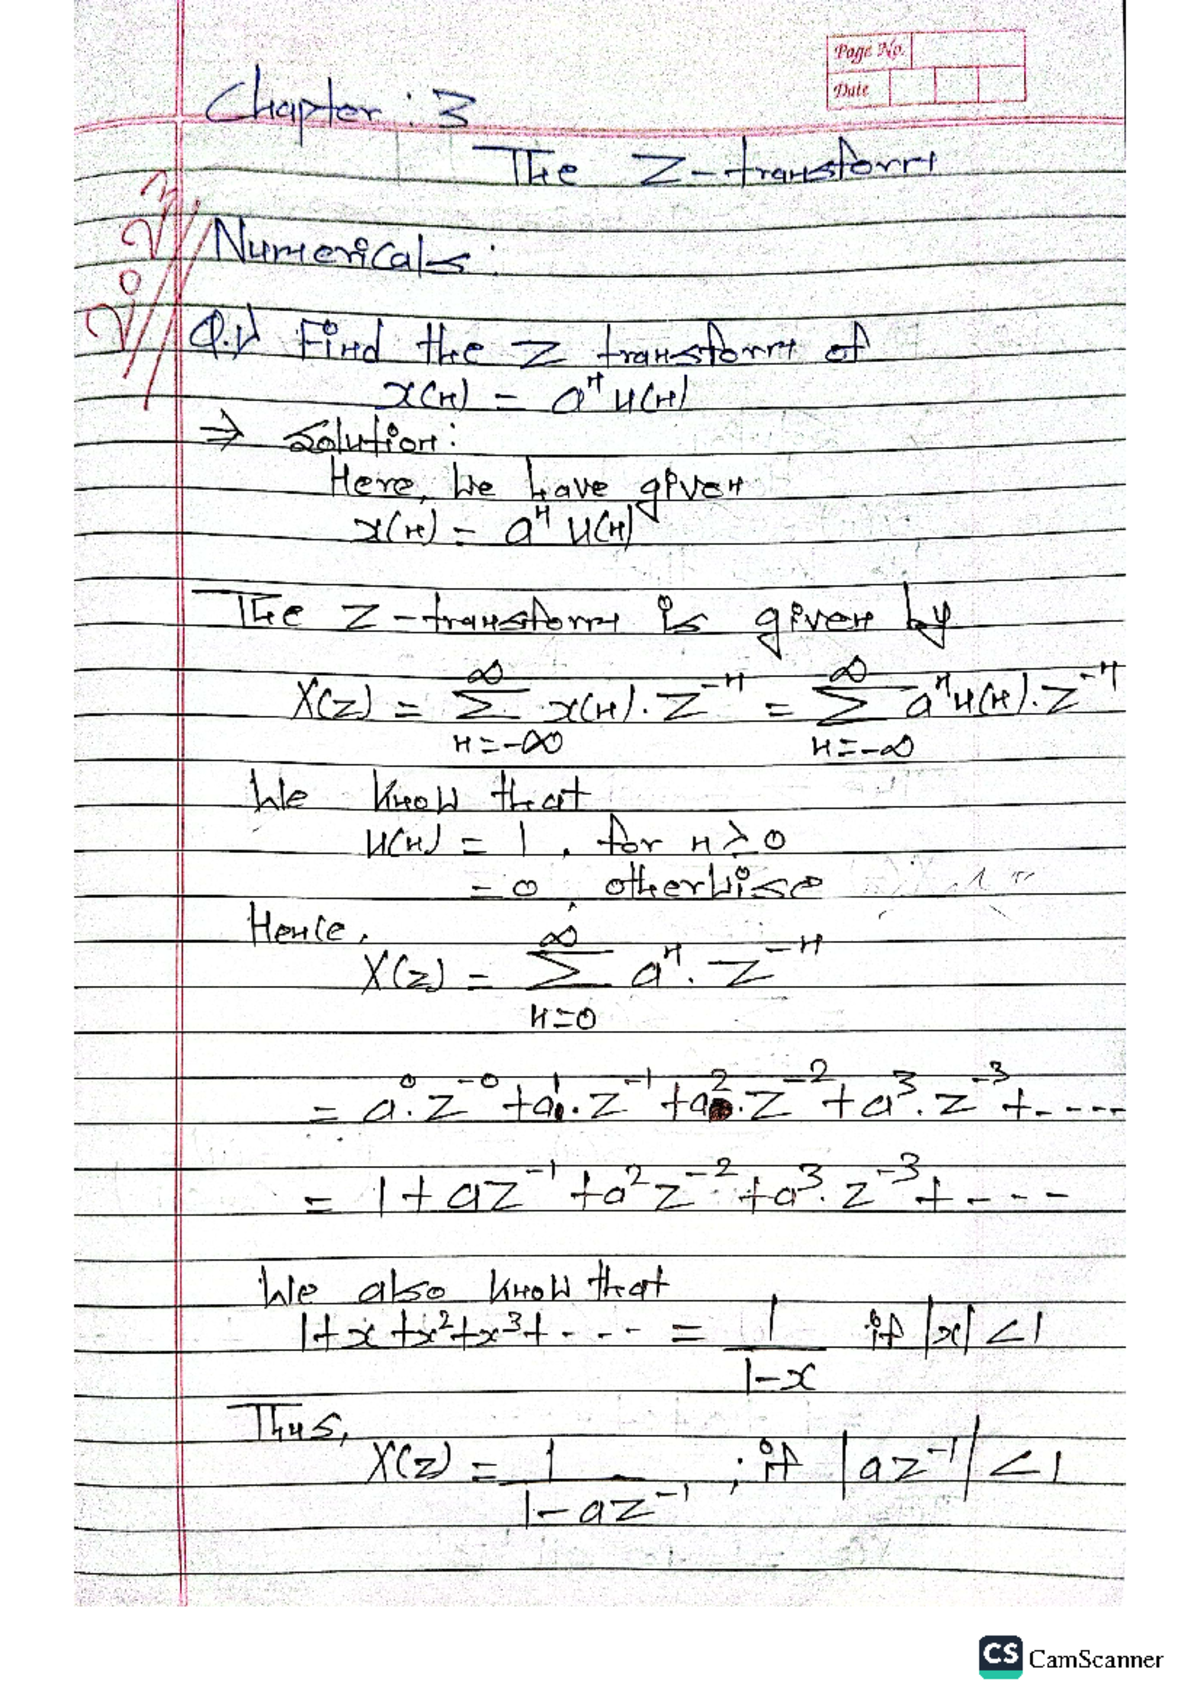 Page No.
Date
Chapter : 3
The Z-transform
Numericals :
Q.1/ Find the Z transform of
x(n) = aⁿ u(n)
⇒ Solution:
Here, we have given
x(n) = aⁿ u(n)
The Z-transform is given by
X(z) = ∞ Σ n=-∞ x(n). Z⁻ⁿ = ∞ Σ n=-∞ aⁿu(n). Z⁻ⁿ
We know that
u(n) = 1 , for n ≥ 0
= 0 otherwise
Hence,
X(z) = ∞ Σ n=0 aⁿ. Z⁻ⁿ
= a⁰. Z⁻⁰ + a¹. Z⁻¹ + a². Z⁻² + a³. Z⁻³ + - - - -
= 1 + aZ⁻¹ + a²Z⁻² + a³. Z⁻³ + - - - -
We also know that
1 + x + x² + x³ + - - - = 1/(1-x) if |x| < 1
Thus,
X(z) = 1/(1-az⁻¹) ; if |az⁻¹| < 1
CS CamScanner